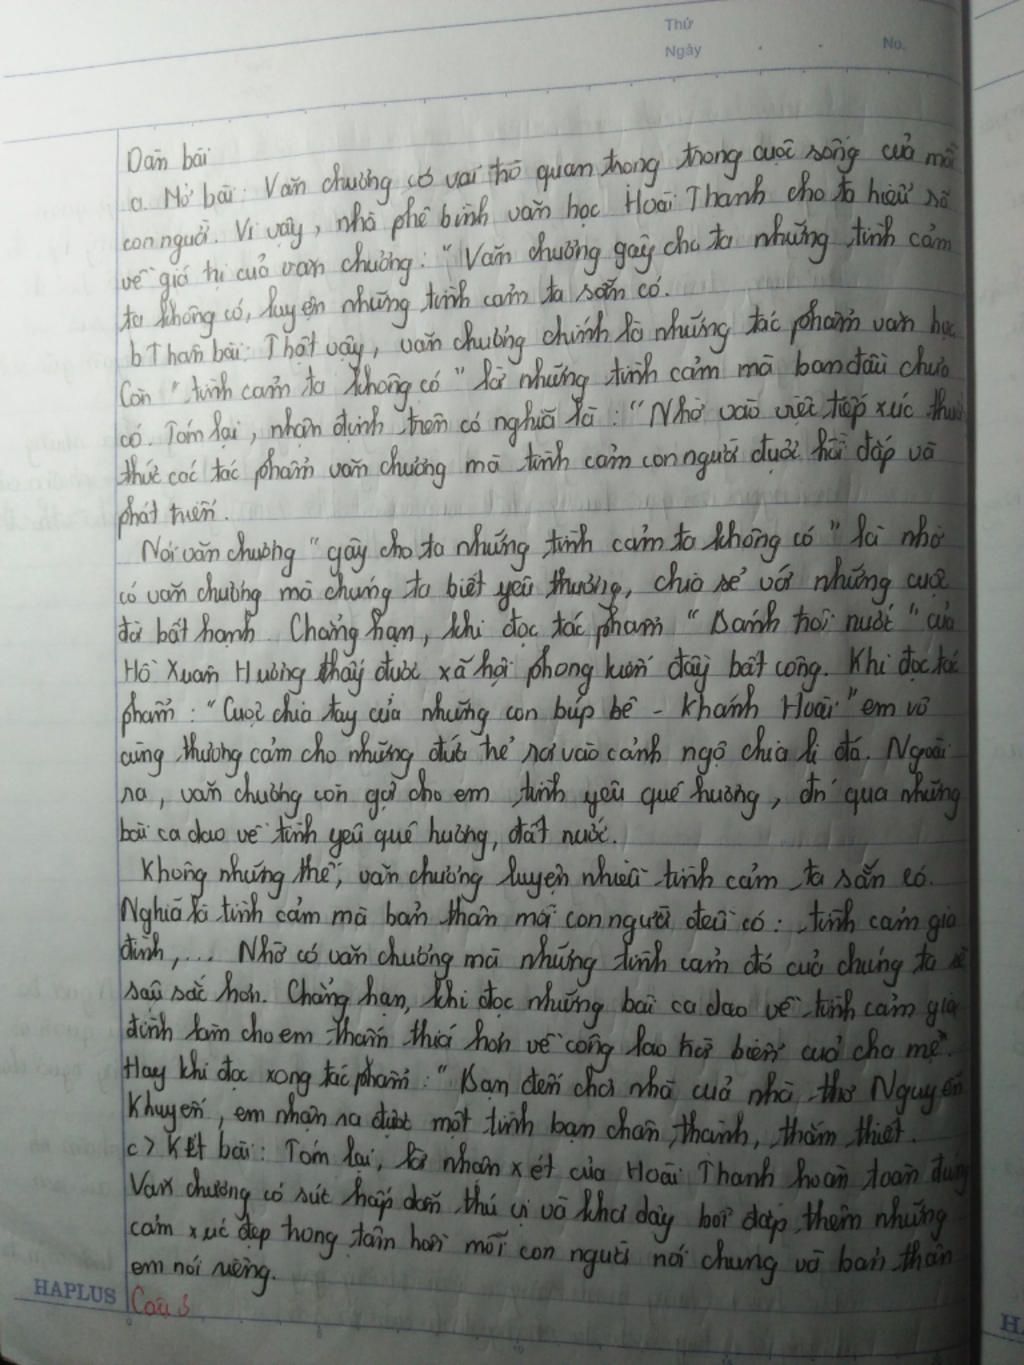 Thứ
Ngày No.
Dàn bài
a. Mở bài: Văn chương có vai trò quan trọng trong cuộc sống của mỗi
con người. Vì vậy, nhà phê bình văn học Hoài Thanh cho ta hiểu rõ
về giá trị của văn chương: "Văn chương gây cho ta những tình cảm
ta không có, luyện những tình cảm ta sẵn có.
b Thân bài: Thật vậy, văn chương chính là những tác phẩm văn học
Còn "tình cảm ta không có" là những tình cảm mà ban đầu chưa
có. Tóm lại, nhận định trên có nghĩa là: "Nhờ vào việc tiếp xúc
thức các tác phẩm văn chương mà tình cảm con người được bồi đắp và
phát triển.
Nói văn chương "gây cho ta những tình cảm ta không có" là nhờ
có văn chương mà chúng ta biết yêu thương, chia sẻ với những cuộc
đời bất hạnh. Chẳng hạn, khi đọc tác phẩm "Bánh trôi nước" của
Hồ Xuân Hương thấy được xã hội phong kiến đầy bất công. Khi đọc tác
phẩm: "Cuộc chia tay của những con búp bê - Khánh Hoài" em vô
cùng thương cảm cho những đứa trẻ rơi vào cảnh ngộ chia li đó. Ngoài
ra, văn chương còn gợi cho em tình yêu quê hương, qua những
bài ca dao về tình yêu quê hương, đất nước.
Không những thế, văn chương luyện nhiều tình cảm ta sẵn có.
Nghĩa là tình cảm mà bản thân mỗi con người đều có: tình cảm gia
đình,... Nhờ có văn chương mà những tình cảm đó của chúng ta sẽ
sâu sắc hơn. Chẳng hạn, khi đọc những bài ca dao về tình cảm gia
đình làm cho em thấm thía hơn về công lao trời biển của cha mẹ".
Hay khi đọc xong tác phẩm: "Bạn đến chơi nhà của nhà thơ Nguyễn
Khuyến, em nhận ra được một tình bạn chân thành, thắm thiết.
c> Kết bài: Tóm lại, lời nhận xét của Hoài Thanh hoàn toàn đúng
Văn chương có sức hấp dẫn thú vị và khơi dậy bồi đắp thêm những
cảm xúc đẹp trong tâm hồn mỗi con người nói chung và bản thân
em nói riêng.
HAPLUS Câu 3